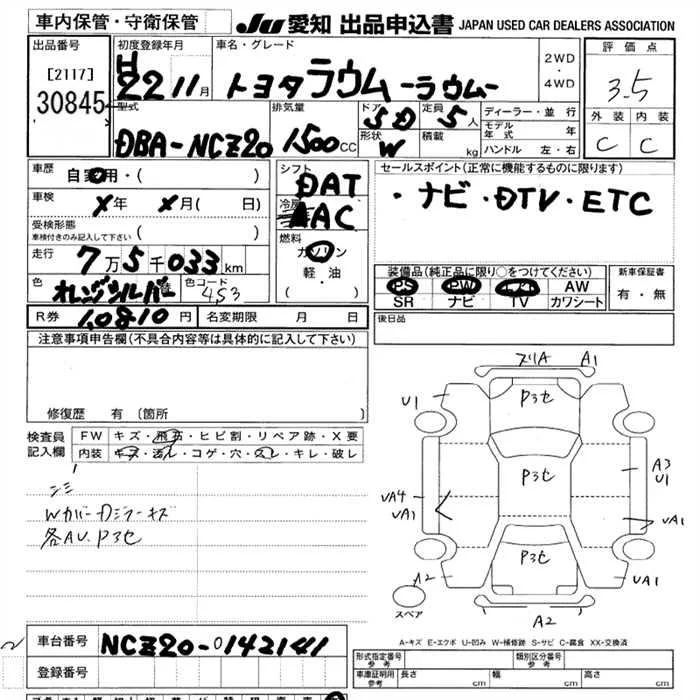 車内保管・守衛保管
JU 愛知 出品申込書 JAPAN USED CAR DEALERS ASSOCIATION
出品番号
[2117]
30845
初度登録年月
H
22 11月
車名・グレード
トヨタ ラウム -ラウム-
2WD
・
4WD
評価点
3.5
外装 内装
C C
型式
DBA-NCZ20
排気量
1500cc
ドア
5D
定員
5人
形状
W
積載
kg
ディーラー・並行
モデル年式 年
ハンドル 左・右
車歴
自家用・( )
車検
X年 X月( 日)
受検形態
車検付きのみ記入して下さい
( )
走行
7万5千033km
色
オレンジシルバー
替
色コード
453
シフト
DAT
冷房
AAC
燃料
ガソリン
軽・油
( )
セールスポイント(正常に機能するものに限ります)
・ナビ・DTV・ETC
装備品(純正品に限り○をつけてください)
PS PW AW
SR ナビ TV カワシート
新車保証書
有・無
R券 10810円
名変期限 月 日
後日品
注意事項申告欄(不具合内容等は具体的に記入して下さい)
修復歴 有 (箇所 )
検査員
記入欄
FW キズ・飛石・ヒビ割・リペア跡・X要
内装 キズ・汚レ・コゲ・穴・スレ・キレ・破レ
シミ
Wカバー カジラーキズ
各AU.P3セ
ズリA A1
U1 P3セ
P3セ
A3
U1
UA4
UA1
UA1
P3セ
A2
UA1
A2
スペア
A-キズ E-エクボ U-凹み W-補修跡 S-サビ C-腐食 XX-交換済
車台番号 NCZ20-0142141
登録番号
形式指定番号
参考
類別区分番号
参考
車庫証明用
参考
長さ cm 幅 cm 高さ cm